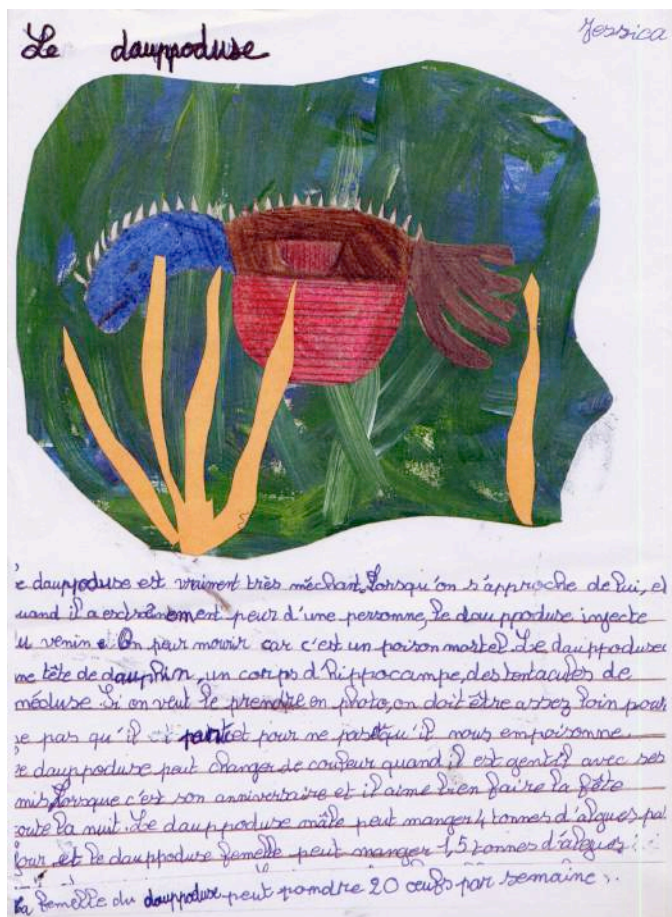 Jessica
Le dauppoduse
e dauppoduse est vraiment très méchant. Lorsqu'on s'approche de lui, et
uand il a extrêmement peur d'une personne, le dauppoduse injecte
du venin. On peur mourir car c'est un poison mortel. Le dauppoduse
ne tête de dauphin, un corps d'hippocampe, des tentacules de
méduse. Si on veut le prendre en photo, on doit être assez loin pour
ne pas qu'il parte et pour ne pas qu'il nous empoisonne
e dauppoduse peut changer de couleur quand il est gentil avec ses
mis, lorsque c'est son anniversaire et il aime bien faire la fête
toute la nuit. Le dauppoduse mâle peut manger 4 tonnes d'algues pa
jour et le dauppoduse femelle peut manger 1,5 tonnes d'algues.
La femelle du dauppoduse peut pondre 20 œufs par semaine.